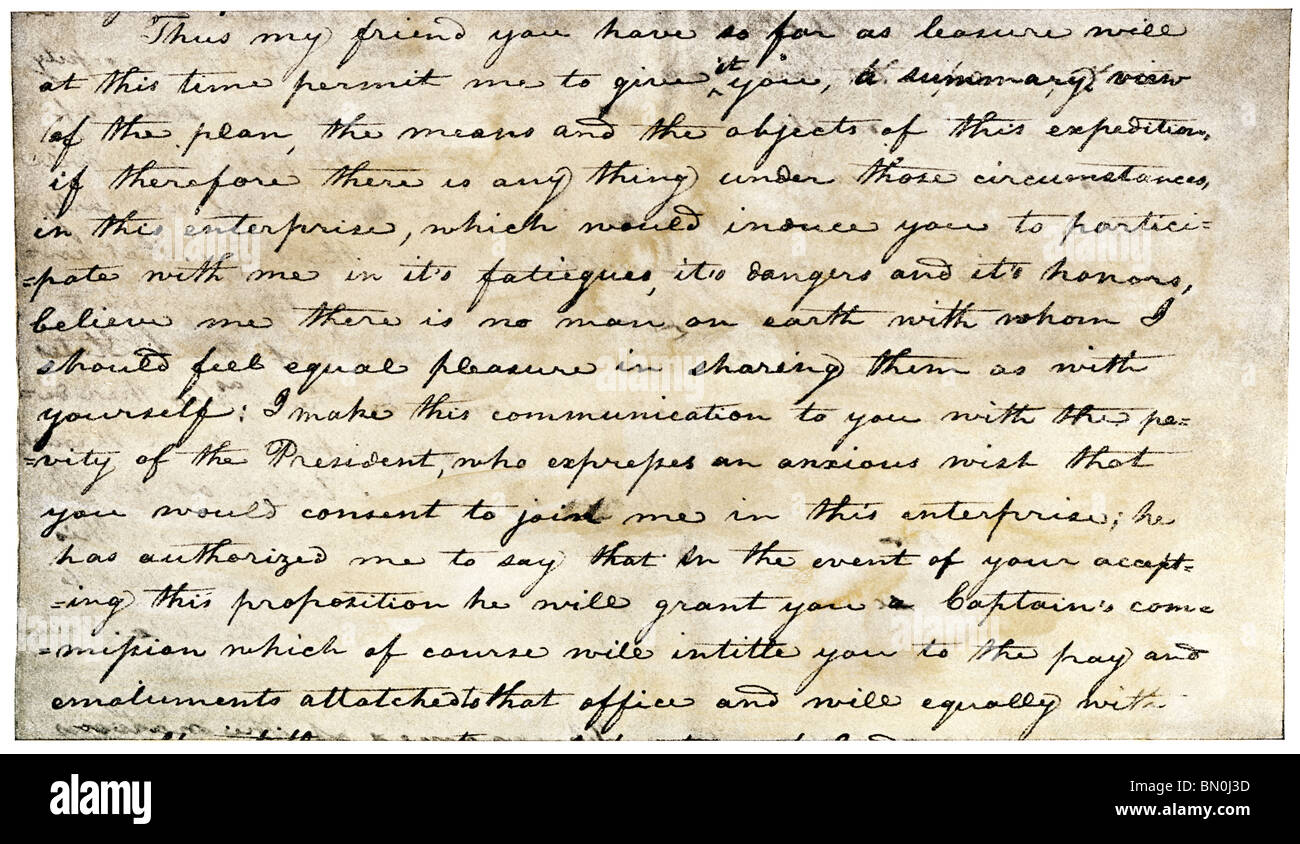 Thus my friend you have so far as leasure will
at this time permit me to give it you, a summary view
of the plan, the means and the objects of this expedition.
if therefore there is any thing under those circumstances,
in this enterprise, which would induce you to partici-
-pate with me in it's fatiegues, it's dangers and it's honors,
believe me there is no man on earth with whom I
should feel equal pleasure in sharing them as with
yourself: I make this communication to you with the pe-
-vity of the President, who expresses an anxious wish that
you would consent to join me in this enterprise; he
has authorized me to say that in the event of your accept-
-ing this proposition he will grant you a Captain's com-
-mission which of course will intitle you to the pay and
emoluments attatched to that office and will equally with
alamy
Image ID: BN0J3D
www.alamy.com